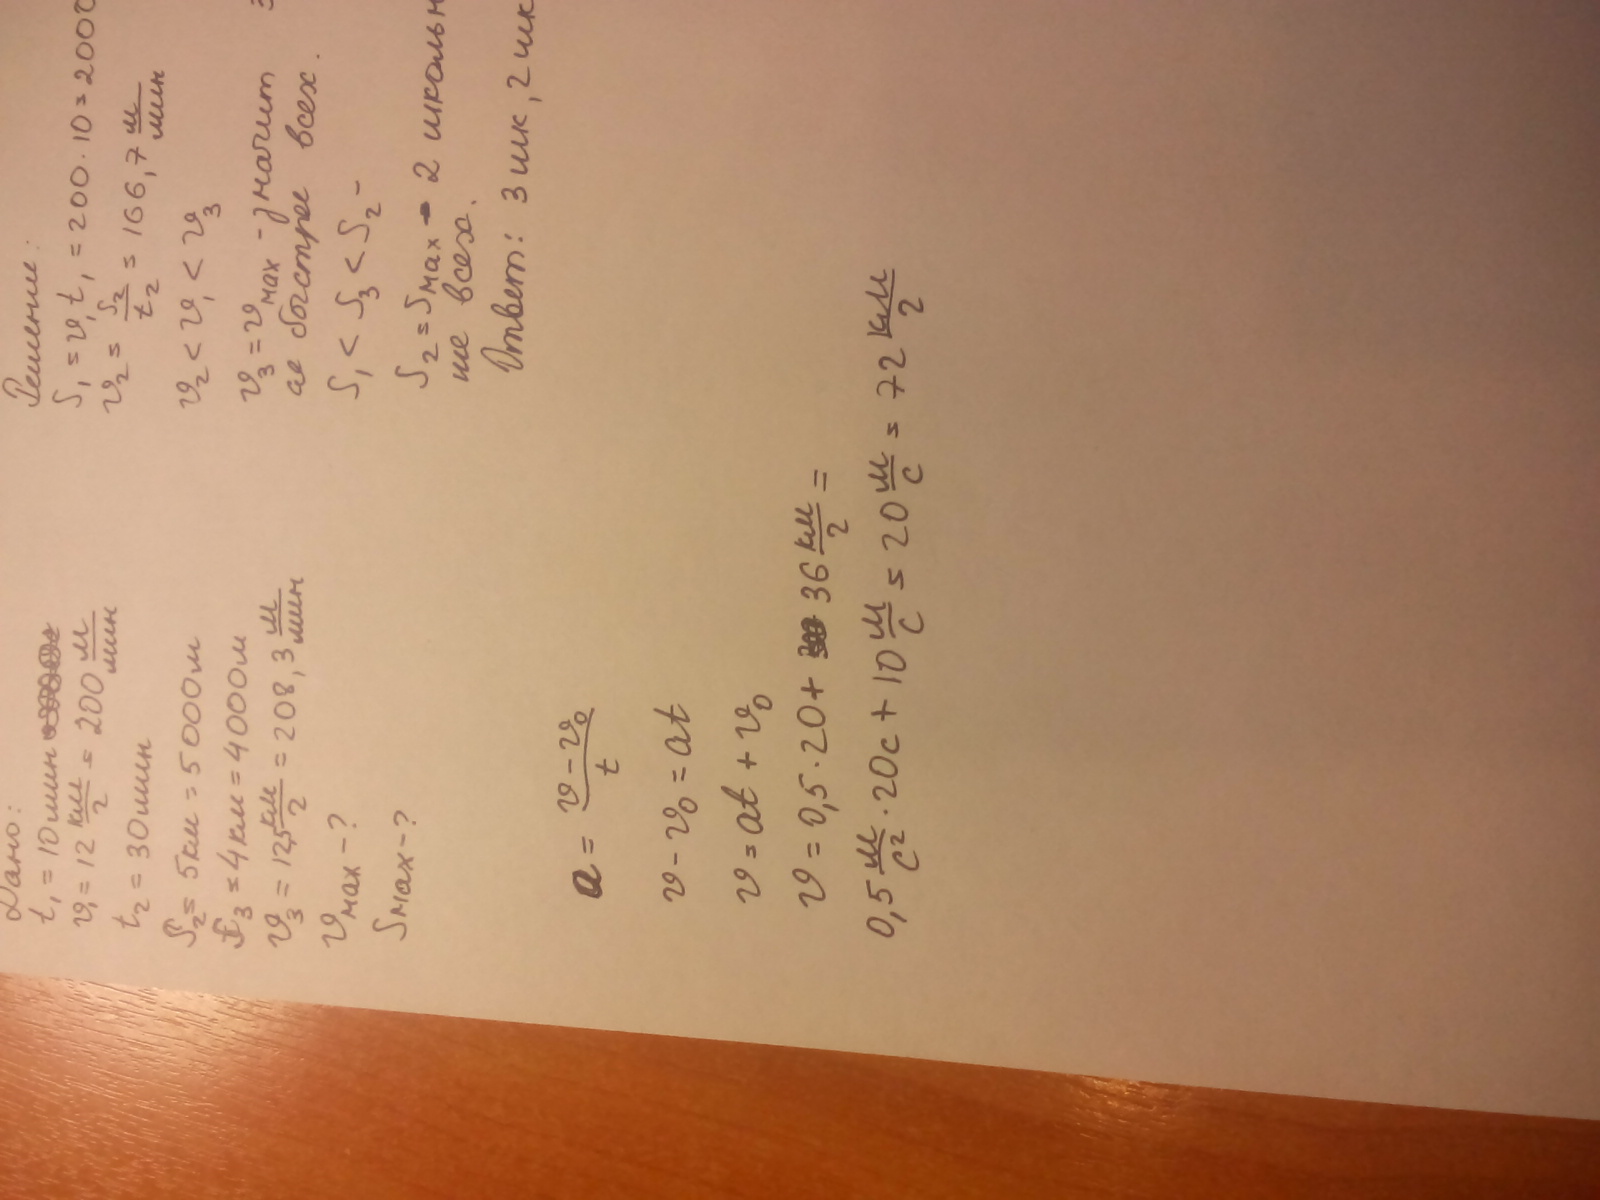 Дано:
t₁ = 10мин
v₁ = 12 км/г = 200 м/мин
t₂ = 30мин
S₂ = 5км = 5000м
S₃ = 4км = 4000м
v₃ = 12,5 км/г = 208,3 м/мин
vмах - ?
Sмах - ?
Решение:
S₁ = v₁t₁ = 200 · 10 = 2000
v₂ = S₂/t₂ = 166,7 м/мин
v₂ < v₁ < v₃
v₃ = vмах - значит
ае быстрее всех.
S₁ < S₃ < S₂ -
S₂ = Sмах - 2 школьн
ше всех.
Ответ: 3 шк, 2 шк
a = (v - v₀)/t
v - v₀ = at
v = at + v₀
v = 0,5 · 20 + 36 км/г =
0,5 м/с² · 20с + 10 м/с = 20 м/с = 72 км/г